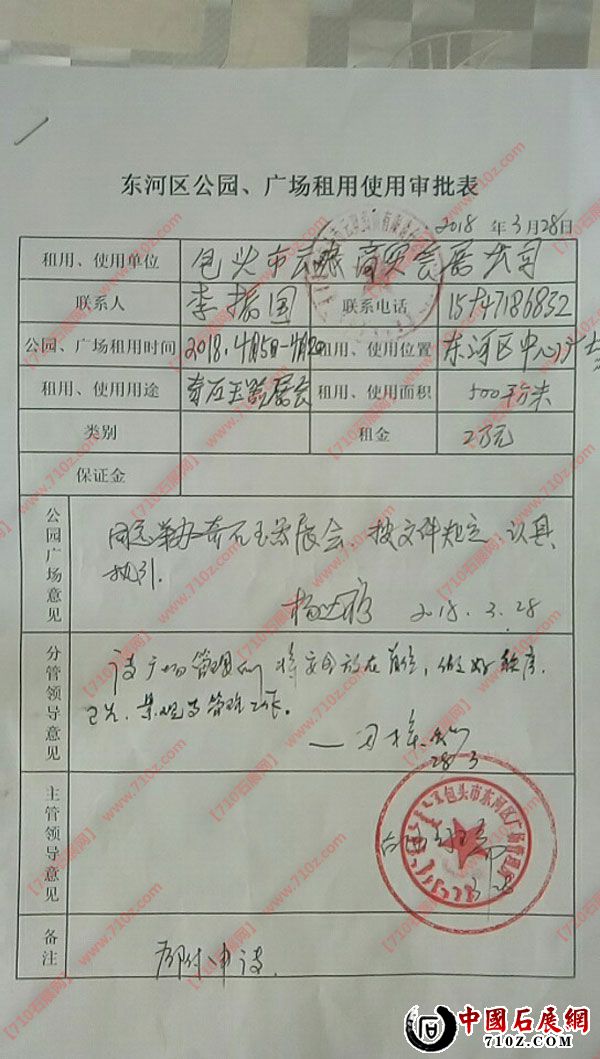 东河区公园、广场租用使用审批表
2018 年 3 月 28 日
租用、使用单位 包头市 商贸会展公司
联系人 李振国 联系电话 15947186832
公园、广场租用时间 2018.4月5日-4月20 租用、使用位置 东河区中心广场
租用、使用用途 奇石玉器展会 租用、使用面积 500平方米
类别 租金 2万元
保证金
公园广场意见
同意举办奇石玉器展会,按文件规定,认真
执行。
2018.3.28
分管领导意见
请广场管理 将安全放在首位,做好秩序
卫生、 管理工作。
28/3
主管领导意见
包头市东河区广场
3.28
备注 附申请
【710石展网】www.710z.com
中國石展網
710z.com